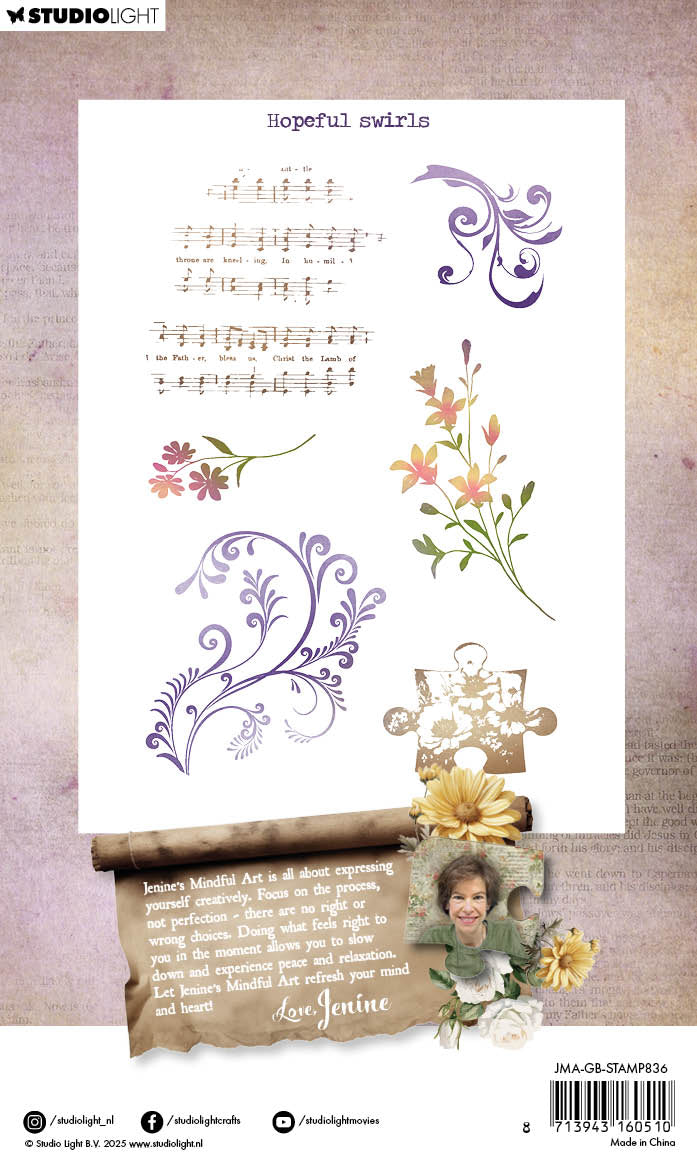 STUDIOLIGHT
Hopeful swirls
throne are kneel - ing, In hu - mil - i
t the Fath - er, bless us, Christ the Lamb of
Jenine's Mindful Art is all about expressing
yourself creatively. Focus on the process,
not perfection - there are no right or
wrong choices. Doing what feels right to
you in the moment allows you to slow
down and experience peace and relaxation.
Let Jenine's Mindful Art refresh your mind
and heart!
Love, Jenine
JMA-GB-STAMP836
8 713943 160510
Made in China
/studiolight_nl
/studiolightcrafts
/studiolightmovies
© Studio Light B.V. 2025 www.studiolight.nl